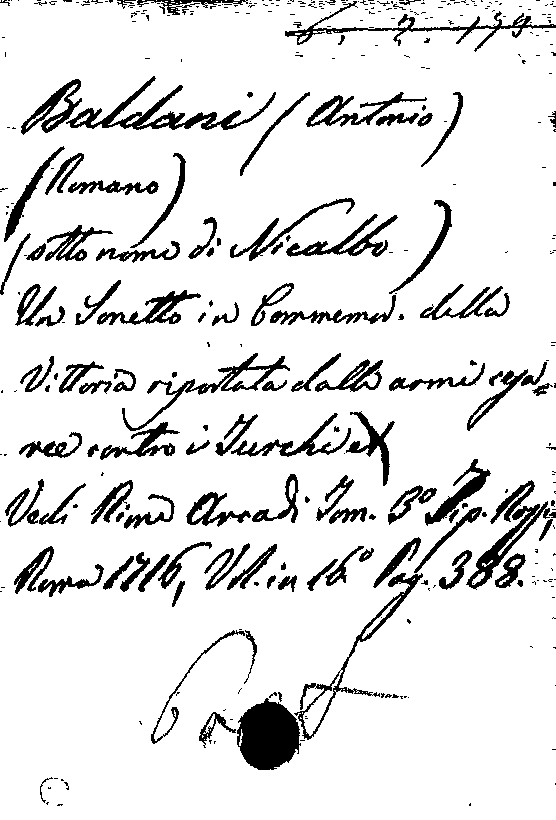 6. 2. 179
Baldani (Antonio)
(Romano)
(sotto nome di Nicalbo)
Un Sonetto in Commemor. della
Vittoria riportata dalle armi cesa=
ree contro i Turchi
Vedi Rime Arcadi Tom. 3º Tip. Rossi,
Roma 1716, Vol. in 16º Pag. 388.